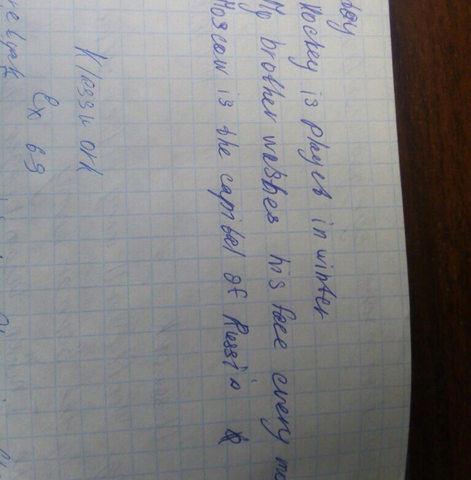 Hockey is played in winter
My brother washes his face every mo
Moscow is the capital of Russia
Klasswork
Ex 69